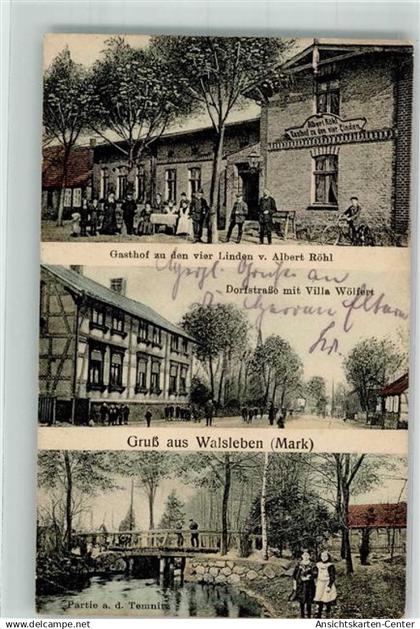 Albert Röhl
Gasthof zu den vier Linden
Gasthof zu den vier Linden v. Albert Röhl
Dorfstraße mit Villa Wölfert
Gruß aus Walsleben (Mark)
Partie a. d. Temnitz
www.Ansichtskarten-Center